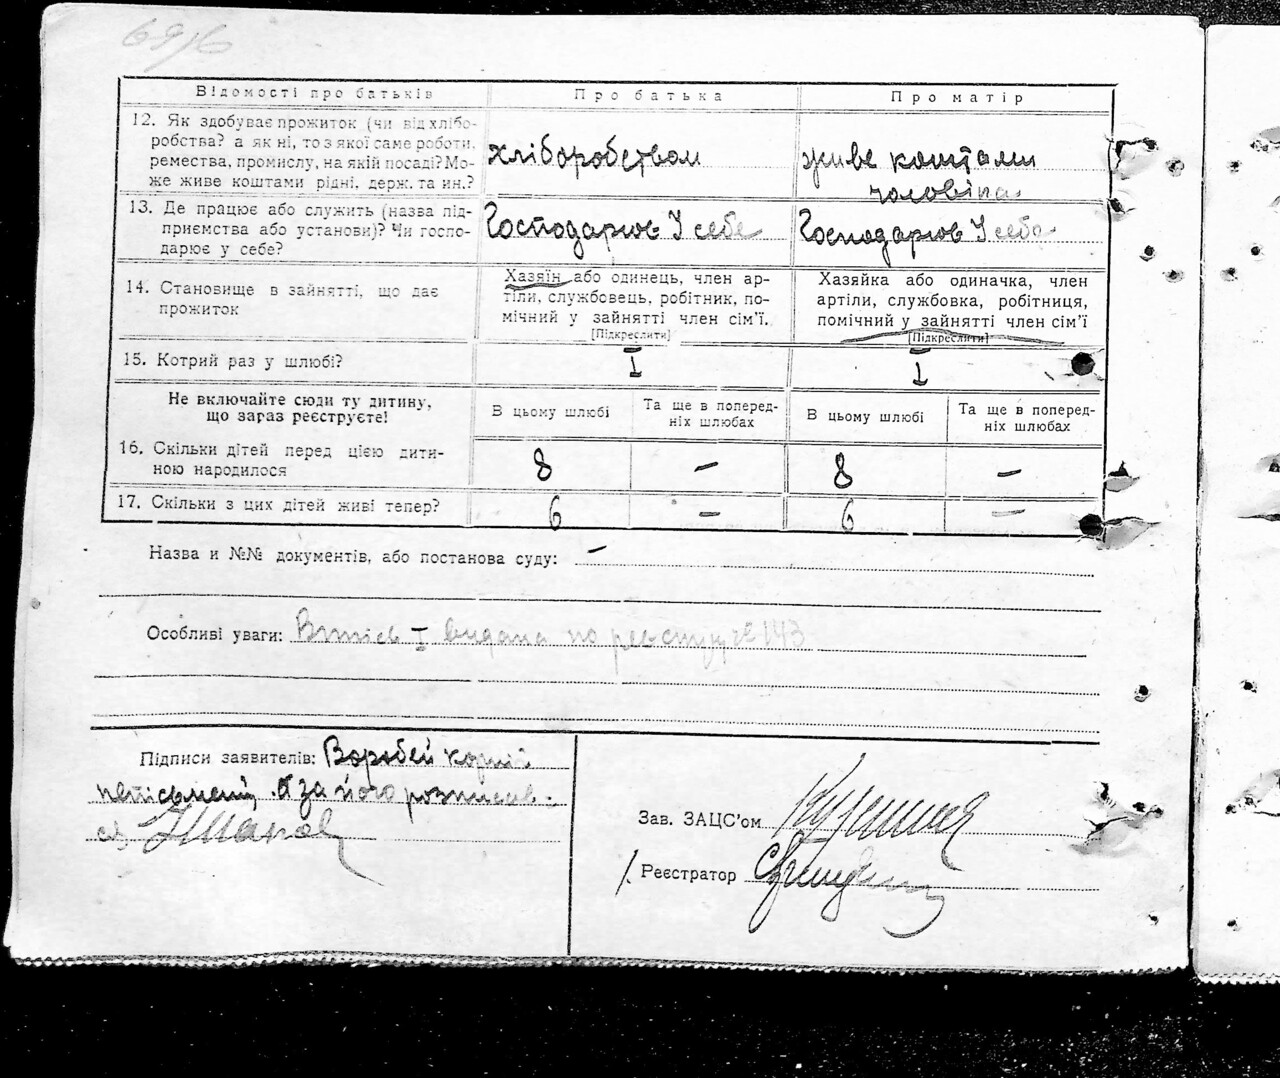 Відомості про батьків Про батька Про матір
12. Як здобуває прожиток (чи від хлібо-
робства? а як ні, то з якої саме роботи,
ремества, промислу, на якій посаді? Мо-
же живе коштами рідні, держ. та ин.?
хліборобством
живе коштами
чоловіка
13. Де працює або служить (назва під-
приємства або установи)? Чи госпо-
дарює у себе?
Господарює У себе
Господарює У себе
14. Становище в зайнятті, що дає
прожиток
Хазяїн або одинець, член ар-
тіли, службовець, робітник, по-
мічний у зайнятті член сім'ї.
[Підкреслити]
Хазяйка або одиначка, член
артіли, службовка, робітниця,
помічний у зайнятті член сім'ї
[Підкреслити]
15. Котрий раз у шлюбі? I I
Не включайте сюди ту дитину,
що зараз реєструєте!
В цьому шлюбі
Та ще в поперед-
ніх шлюбах
В цьому шлюбі
Та ще в поперед-
ніх шлюбах
16. Скільки дітей перед цією дити-
ною народилося
8 – 8 –
17. Скільки з цих дітей живі тепер? 6 – 6 –
Назва и №№ документів, або постанова суду: –
Особливі уваги: Витяг I видана по реєстру № 143
Підписи заявителів: Воробей Корній
неписьмений а за його розписав-
ся
Зав. ЗАЦС'ом
Реєстратор